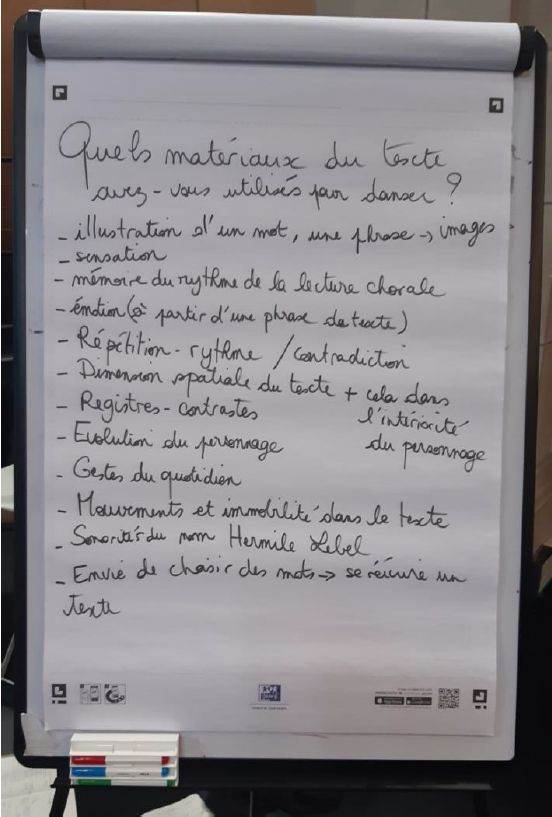 Quels matériaux du texte
avez-vous utilisés pour danser ?
- illustration d'un mot, une phrase → images
- sensation
- mémoire du rythme de la lecture chorale
- émotion (à partir d'une phrase de texte)
- Répétition - rythme / contradiction
- Dimension spatiale du texte + cela dans
l'intériorité
du personnage
- Registres - contrastes
- Evolution du personnage
- Gestes du quotidien
- Mouvements et immobilité dans le texte
- Sonorité du nom Hermile Lebel
- Envie de choisir des mots → se réécrire un
texte